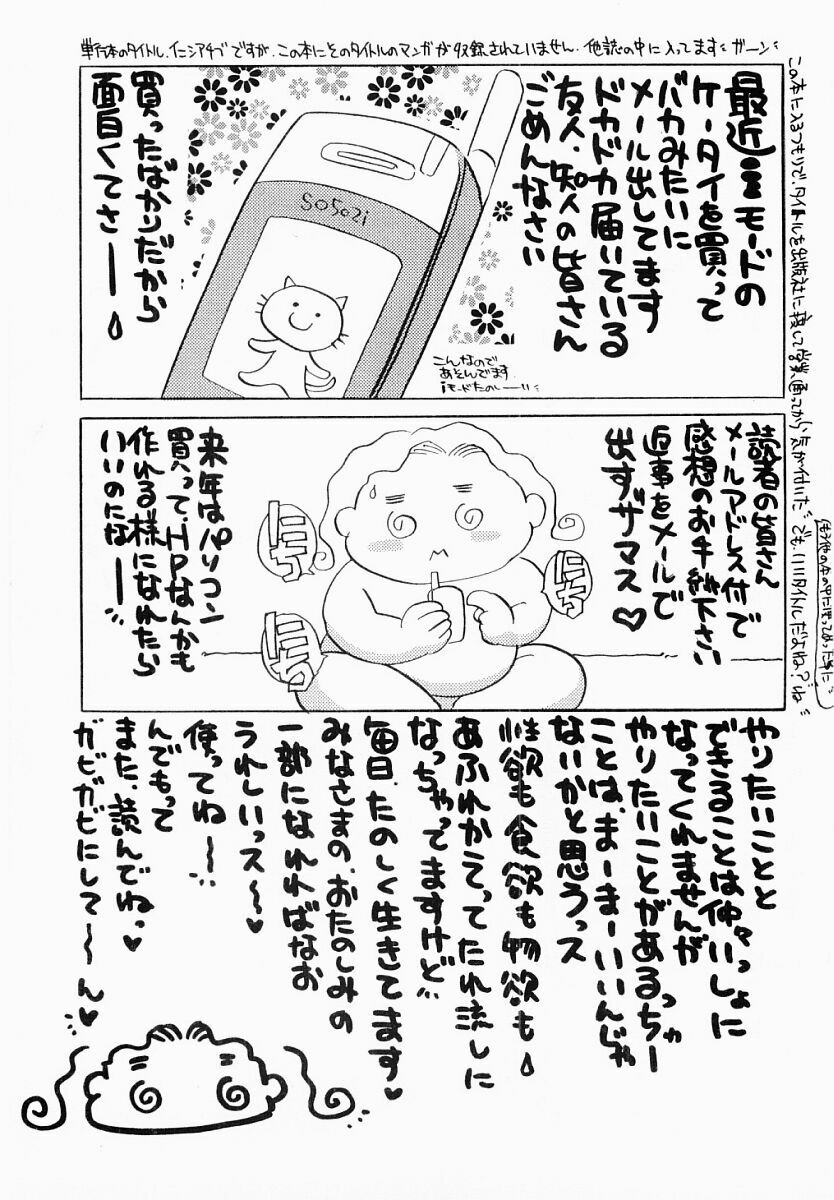 単行本のタイトル、イニシアチブですが、この本にそのタイトルのマンガが収録されていません。他誌の中に入ってます〃ガーン〃
この本に入るつもりで、タイトルを出版社に
でも、いいタイトルだよね？ね〃
最近iモードの
ケータイを買って
バカみたいに
メール出してます
ドカドカ届いている
友人、知人の皆さん
ごめんなさい
買ったばかりだから
面白くてさーー
SO502i
こんなので
あそんでます
iモードたのしーー〃
読者の皆さん
メールアドレス付で
感想のお手紙下さい
返事をメールで
出すザマス♡
にっち
にっち
にっち
来年はパソコン
買って、HPなんかも
作れる様になれたら
いいのになーー〃
やりたいことと
できることは仲々いっしょに
なってくれませんが
やりたいことがあるっちゃー
ことは、まーまーいいんじゃ
ないかと思うっス
性欲も食欲も物欲も
あふれかえってたれ流しに
なっちゃってますけど〃
毎日、たのしく生きてます♥
みなさまの、おたのしみの
一部になれればなお
うれしいっス〜♥
使ってね〜
んでもって
また、読んでねっ♥
ガビガビにして〜ん♥